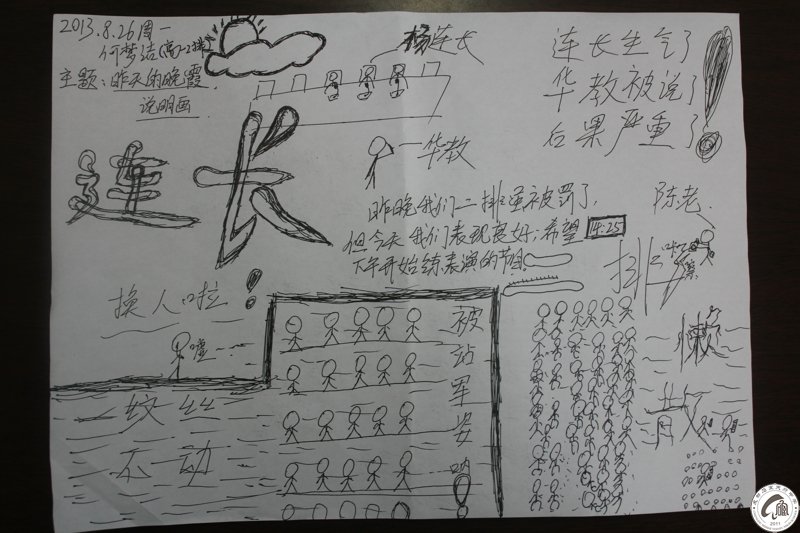 2013.8.26周一
何梦洁(高一2排)
主题:昨天的晚霞
说明画
杨连长
连长生气了
华教被说了
后果严重了!
连长!
一华教
昨晚我们二排车被罚了,
但今天我们表现良好;希望14:25
下午开始练表演的节目
陈老
换人啦
嘘
纹丝
不动
被站军姿哟!
排
懒
散
2011